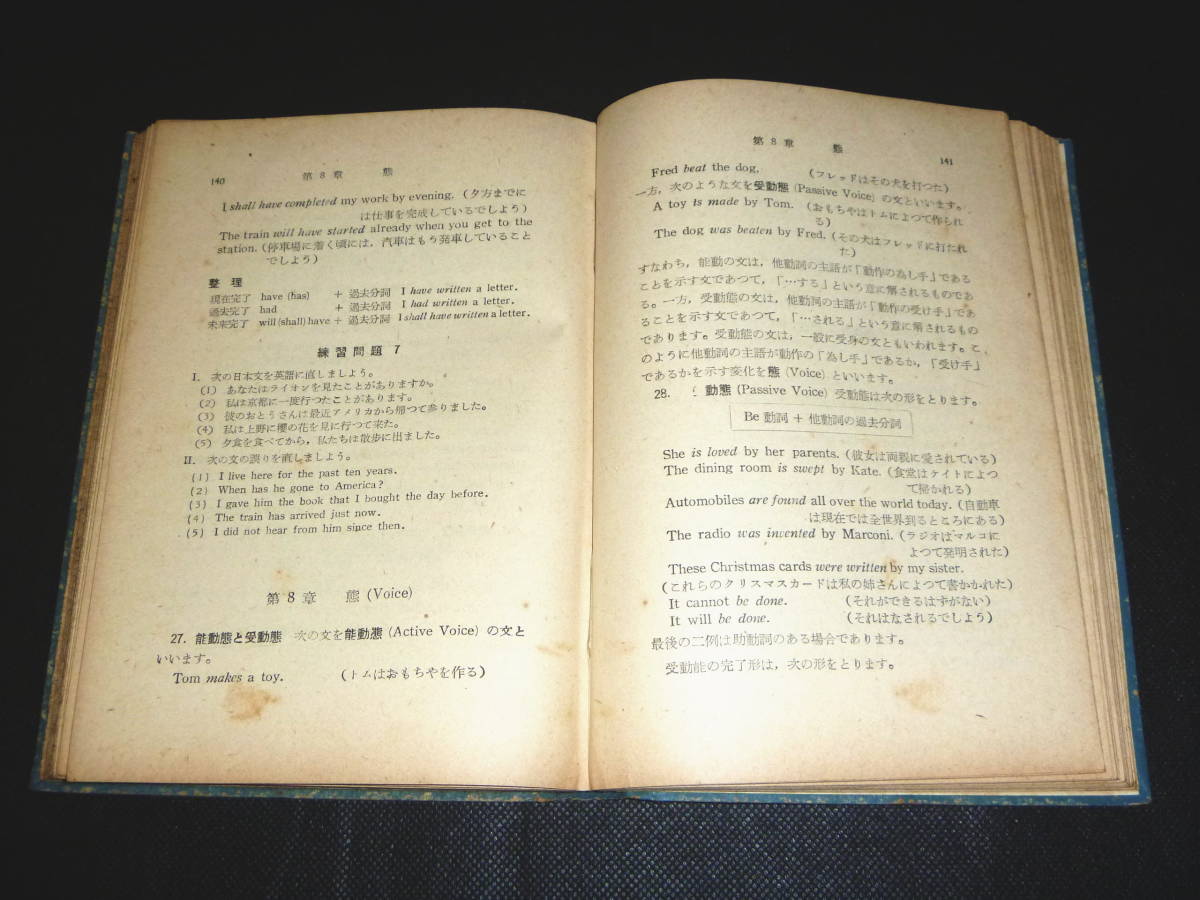 140
第8章 態
I shall have completed my work by evening. (夕方までに
は仕事を完成しているでしよう)
The train will have started already when you get to the
station. (停車場に着く頃には，汽車はもう発車していること
でしよう)
整理
現在完了 have (has) + 過去分詞 I have written a letter.
過去完了 had + 過去分詞 I had written a letter.
未来完了 will (shall) have + 過去分詞 I shall have written a letter.
練習問題 7
I. 次の日本文を英語に直しましよう。
(1) あなたはライオンを見たことがありますか。
(2) 私は京都に一度行つたことがあります。
(3) 彼のおとうさんは最近アメリカから帰つて参りました。
(4) 私は上野に櫻の花を見に行つて来た。
(5) 夕食を食べてから，私たちは散歩に出ました。
II. 次の文の誤りを直しましよう。
(1) I live here for the past ten years.
(2) When has he gone to America?
(3) I gave him the book that I bought the day before.
(4) The train has arrived just now.
(5) I did not hear from him since then.
第8章 態 (Voice)
27. 能動態と受動態 次の文を能動態 (Active Voice) の文と
いいます。
Tom makes a toy. (トムはおもちやを作る)
第8章 態
141
Fred beat the dog, (フレッドはその犬を打つた)
一方，次のような文を受動態 (Passive Voice) の文といいます。
A toy is made by Tom. (おもちやはトムによつて作られ
る)
The dog was beaten by Fred. (その犬はフレッドに打たれ
た)
すなわち，能動の文は，他動詞の主語が「動作の為し手」である
ことを示す文であつて，「…する」という意に解されるものであ
る。一方，受動態の文は，他動詞の主語が「動作の受け手」であ
ることを示す文であつて，「…される」という意に解されるもの
であります。受動態の文は，一般に受身の文ともいわれます。こ
のように他動詞の主語が動作の「為し手」であるか，「受け手」
であるかを示す変化を態 (Voice) といいます。
28. 動態 (Passive Voice) 受動態は次の形をとります。
Be 動詞 + 他動詞の過去分詞
She is loved by her parents. (彼女は両親に愛されている)
The dining room is swept by Kate. (食堂はケイトによつ
て掃かれる)
Automobiles are found all over the world today. (自動車
は現在では全世界到るところにある)
The radio was invented by Marconi. (ラジオはマルコに
よつて発明された)
These Christmas cards were written by my sister.
(これらのクリスマスカードは私の姉さんによつて書かかれた)
It cannot be done. (それができるはずがない)
It will be done. (それはなされるでしよう)
最後の二例は助動詞のある場合であります。
受動能の完了形は，次の形をとります。